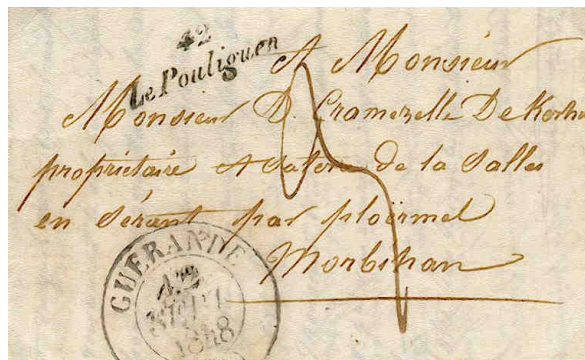 42
Le Pouliguen
A Monsieur
Monsieur D. Cramezelle De
propriétaire A de la Salles
en Sérant par ploërmel
Morbihan
GUERANDE
SEPT
1848